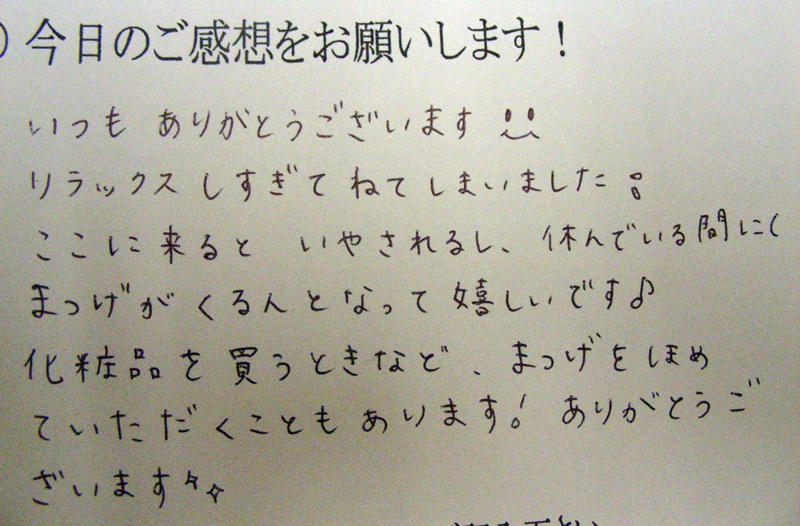 ) 今日のご感想をお願いします！
いつも ありがとうございます
リラックス しすぎて ねてしまいました
ここに来ると いやされるし、休んでいる間に(
まつげが くるんとなって 嬉しいです♪
化粧品を買うときなど、まつげをほめ
ていただくこともあります! ありがとうご
ざいます